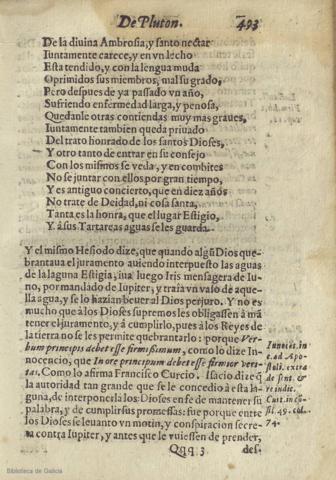 De Pluton. 493
De la diuina Ambrosia, y santo nectar
Iuntamente carece, y en vn lecho
Esta tendido, y con la lengua muda
Oprimidos sus miembros, mal su grado,
Pero despues de ya passado vn año,
Sufriendo enfermedad larga, y penosa,
Quedanle otras contiendas muy mas graues,
Iuntamente tambien queda priuado
Del trato honrado de los santos Dioses,
Y otro tanto de entrar en su consejo
Con los mismos se veda, y en combites
No se juntar con ellos por gran tiempo,
Y es antiguo concierto, que en diez años
No trate de Deidad, ni cosa santa,
Tanta es la honra, que el lugar Estigio,
Y à sus Tartareas aguas se les guarda.
Y el mismo Hesiodo dize, que quando algũ Dios que-
brantaua el juramento auiendo interpuesto las aguas
de la laguna Estigia, iua luego Iris mensagera de Iu-
no, por mandado de Iupiter, y traia vn vaso de aque-
lla agua, y se lo hazian beuer al Dios perjuro. Y no es
mucho que à los Dioses supremos les obligassen à mã
tener el juramento, y à cumplirlo, pues à los Reyes de
la tierra no se les permite quebrantarlo: porque Ver-
bum principis debet esse firmissimum, como lo dize In-
nocencio, que In ore principum debet esse firmior veri-
tas. Como lo afirma Francisco Curcio. Isacio dize q̃
la autoridad tan grande que se le concedio à esta la-
guna, de interponerla los Dioses en fe de mantener su
palabra, y de cumplir sus promessas: fue porque entre
los Dioses se leuanto vn motin, y conspiracion secre-
ta contra Iupiter, y antes que le viniessen de prender,
Qqq 3 des-
Innoc. in
c. ad Apo-
stoli. extra
de sent. &
re iudic.
Curt. in cõ
sil. 49. col.
74.
Biblioteca de Galicia